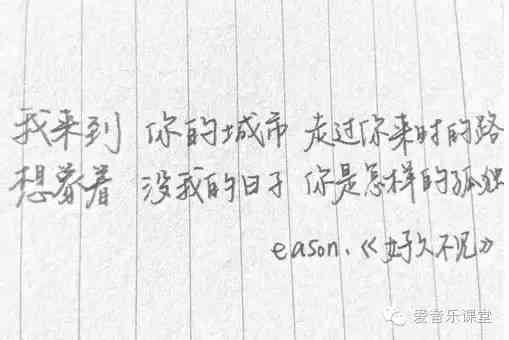 我来到 你的城市 走过你来时的路
想象着 没我的日子 你是怎样的孤独
eason.《好久不见》
爱音乐课堂